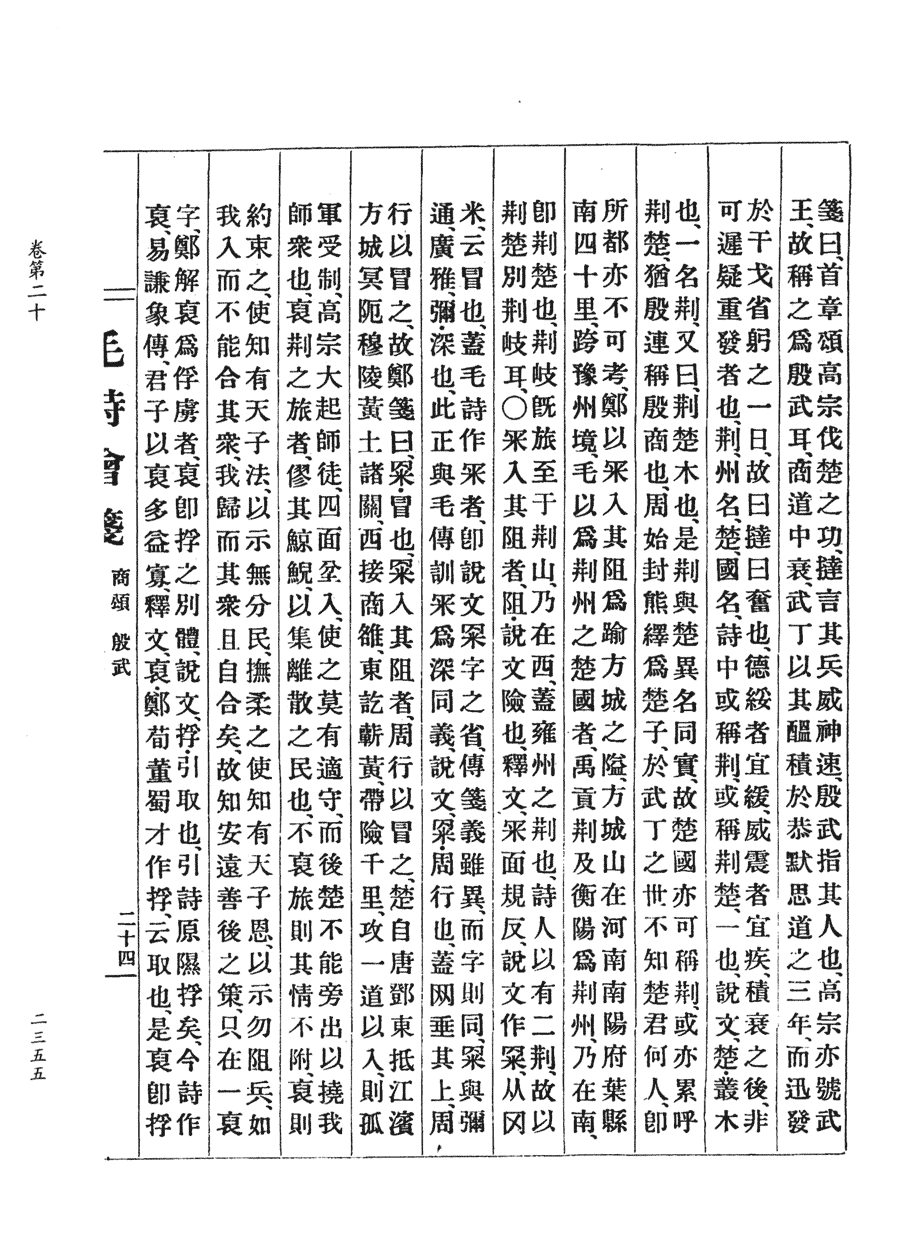 箋曰、首章頌高宗伐楚之功、撻言其兵威神速、殷武指其人也、高宗亦號武
王、故稱之爲殷武耳、商道中衰、武丁以其醞積於恭默思道之三年、而迅發
於干戈省躬之一日、故曰撻曰奮也、德綏者宜緩、威震者宜疾、積衰之後、非
可遲疑重發者也、荆、州名、楚、國名、詩中或稱荆、或稱荆楚、一也、說文、楚・叢木
也、一名荆、又曰、荆楚木也、是荆與楚異名同實、故楚國亦可稱荆、或亦累呼
荆楚、猶殷連稱殷商也、周始封熊繹爲楚子、於武丁之世、不知楚君何人、卽
所都亦不可考、鄭以冞入其阻爲踰方城之隘、方城山在河南南陽府葉縣
南四十里、跨豫州境、毛以爲荆州之楚國者、禹貢荆及衡陽爲荆州、乃在南、
卽荆楚也、荆岐旣旅至于荆山、乃在西、蓋雍州之荆也、詩人以有二荆、故以
荆楚別荆岐耳、○冞入其阻者、阻・說文險也、釋文、冞面規反、說文作㓁、从冈
米、云冒也、蓋毛詩作冞者、卽說文㓁字之省、傳箋義雖異、而字則同、㓁與彌
通、廣雅、彌・深也、此正與毛傳訓冞爲深同義、說文、㓁・周行也、蓋网垂其上、周
行以冒之、故鄭箋曰、㓁・冒也、㓁入其阻者、周行以冒之、楚自唐鄧東抵江濱
方城冥阨穆陵黃土諸關、西接商雒、東訖蘄黃、帶險千里、攻一道以入、則孤
軍受制、高宗大起師徒、四面坌入、使之莫有適守、而後楚不能旁出以撓我
師衆也、裒荆之旅者、僇其鯨鯢、以集離散之民也、不裒旅則其情不附、裒則
約束之、使知有天子法、以示無分民、撫柔之使知有天子恩、以示勿阻兵、如
我入而不能合其衆、我歸而其衆且自合矣、故知安遠善後之策、只在一裒
字、鄭解裒爲俘虜者、裒卽捊之別體、說文、捊・引取也、引詩原隰捊矣、今詩作
裒、易謙象傳、君子以裒多益寡、釋文、裒・鄭荀董蜀才作捊、云取也、是裒卽捊
毛詩會箋 商頌 殷武 二十四
卷第二十 二三五五